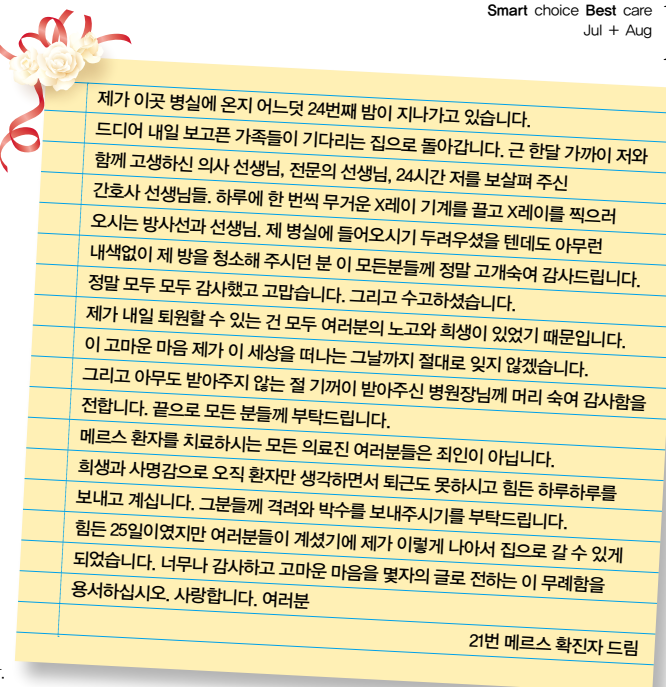 Smart choice Best care
Jul + Aug
제가 이곳 병실에 온지 어느덧 24번째 밤이 지나가고 있습니다.
드디어 내일 보고픈 가족들이 기다리는 집으로 돌아갑니다. 근 한달 가까이 저와
함께 고생하신 의사 선생님, 전문의 선생님, 24시간 저를 보살펴 주신
간호사 선생님들. 하루에 한 번씩 무거운 X레이 기계를 끌고 X레이를 찍으러
오시는 방사선과 선생님. 제 병실에 들어오시기 두려우셨을 텐데도 아무런
내색없이 제 방을 청소해 주시던 분 이 모든분들께 정말 고개숙여 감사드립니다.
정말 모두 모두 감사했고 고맙습니다. 그리고 수고하셨습니다.
제가 내일 퇴원할 수 있는 건 모두 여러분의 노고와 희생이 있었기 때문입니다.
이 고마운 마음 제가 이 세상을 떠나는 그날까지 절대로 잊지 않겠습니다.
그리고 아무도 받아주지 않는 절 기꺼이 받아주신 병원장님께 머리 숙여 감사함을
전합니다. 끝으로 모든 분들께 부탁드립니다.
메르스 환자를 치료하시는 모든 의료진 여러분들은 죄인이 아닙니다.
희생과 사명감으로 오직 환자만 생각하면서 퇴근도 못하시고 힘든 하루하루를
보내고 계십니다. 그분들께 격려와 박수를 보내주시기를 부탁드립니다.
힘든 25일이였지만 여러분들이 계셨기에 제가 이렇게 나아서 집으로 갈 수 있게
되었습니다. 너무나 감사하고 고마운 마음을 몇자의 글로 전하는 이 무례함을
용서하십시오. 사랑합니다. 여러분
21번 메르스 확진자 드림